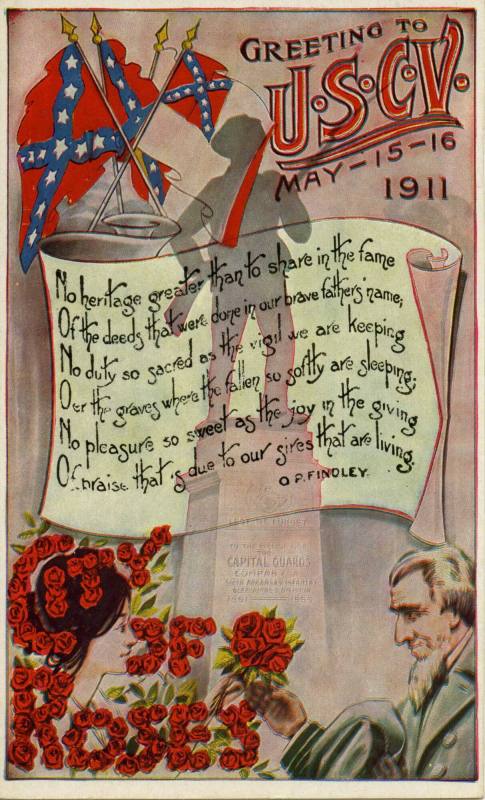 GREETING TO
U.S.C.V.
MAY-15-16
1911
No heritage greater than to share in the fame
Of the deeds that were done in our brave father's name;
No duty so sacred as the vigil we are keeping
O'er the graves where the fallen so softly are sleeping;
No pleasure so sweet as the joy in the giving
Of praise that is due to our sires that are living.
O.P. FINDLEY.
LEST WE FORGET
TO THE
THE
CAPITAL GUARDS
COMPANY A
SIXTH ARKANSAS INFANTRY
1861 1865
CITY
OF
ROSES